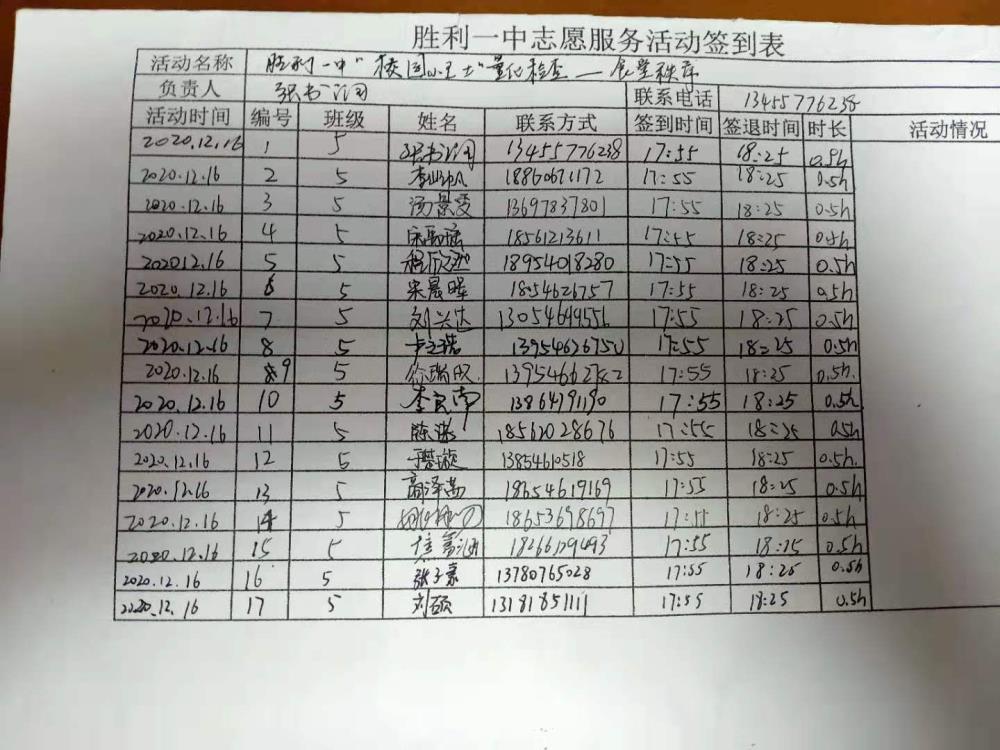 胜利一中志愿服务活动签到表
活动名称 胜利一中"校园卫士"量化检查—食堂秩序
负责人 联系电话 13455776238
活动时间 编号 班级 姓名 联系方式 签到时间 签退时间 时长 活动情况
2020.12.16 1 5 13455776238 17:55 18:25 0.5h
2020.12.16 2 5 18860671172 17:55 18:25 0.5h
2020.12.16 3 5 汤景雯 13697837801 17:55 18:25 0.5h
2020.12.16 4 5 18561213611 17:55 18:25 0.5h
202012.16 5 5 程欣 18954018280 17:55 18:25 0.5h
2020.12.16 6 5 宋晨晖 1854626757 17:55 18:25 0.5h
2020.12.16 7 5 刘兴达 13054649556 17:55 18:25 0.5h
2020.12.16 8 5 13954626750 17:55 18:25 0.5h
2020.12.16 9 5 17:55 18:25 0.5h.
2020.12.16 10 5 李良南 13864791190 17:55 18:25 0.5h
2020.12.16 11 5 陈 18562028676 17:55 18:25 0.5h
2020.12.16 12 5 璇 13854610518 17:55 18:25 0.5h.
2020.12.16 13 5 高泽 18654619169 17:55 18:25 0.5h
2020.12.16 14 5 18653698697 17:55 18:25 0.5h
2020.12.16 15 5 18266129493 17:55 18:25 0.5h
2020.12.16 16 5 张子豪 13780765028 17:55 18:25 0.5h
2020.12.16 17 5 刘硕 13181851111 17:55 18:25 0.5h